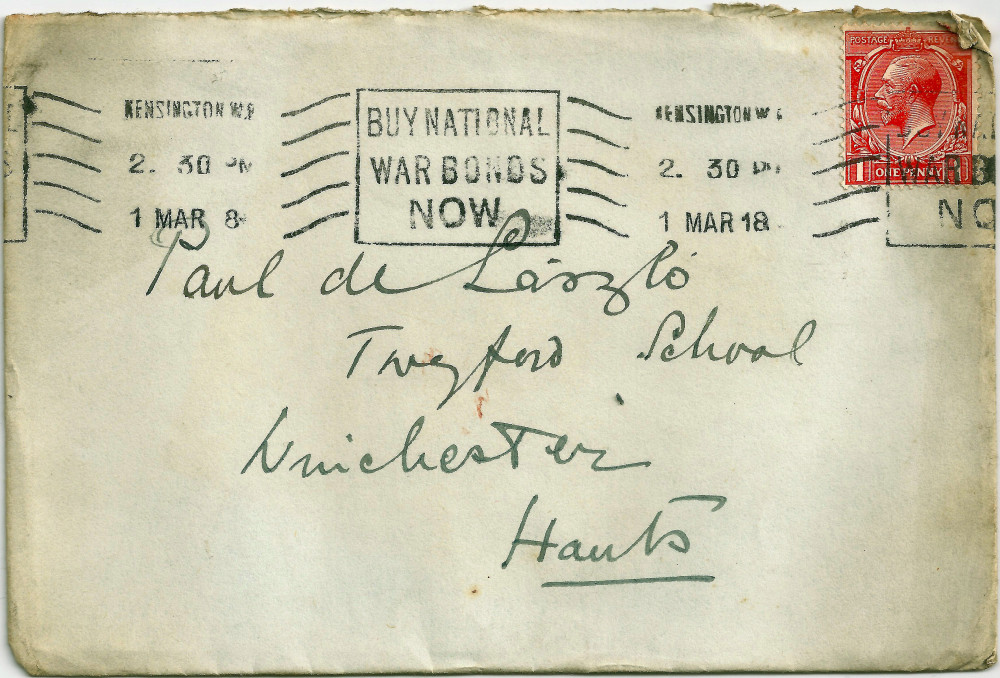 KENSINGTON W.8
2. 30 PM
1 MAR 8
BUY NATIONAL
WAR BONDS
NOW
KENSINGTON W
2. 30 PM
1 MAR 18
POSTAGE REVE
1 ONE PENNY
WAR B
NO
Paul de László
Twyford School
Winchester
Hants